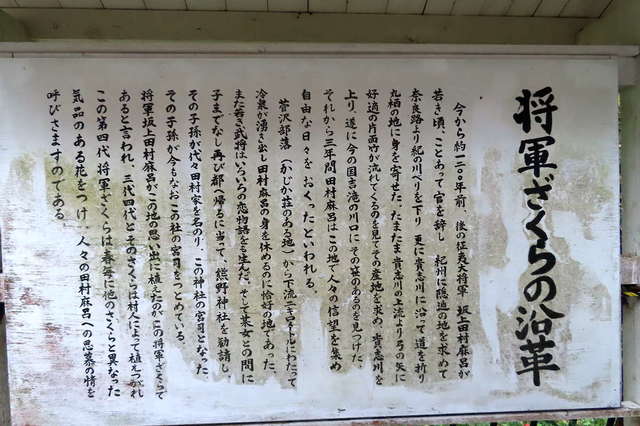 将軍ざくらの沿革
今から約一二〇〇年前、後の征夷大将軍　坂上田村麻呂が
若き頃、ことあって官を辞し　紀州に隠遁の地を求めて
奈良路より紀の川べりを下り　更に貴志川に沿って道を折り
丸栖の地に身を寄せた。たまたま貴志川の上流より弓の矢に
好適の片面竹が流れてくるのを見てその産地を求め　貴志川を
上り、遂に今の国吉滝の川口に　その姿のあるのを見つけた。
それから三年間　田村麻呂はこの地で人々の信望を集め
自由な日々を　おくったといわれる。
菅沢部落　(かじか荘のある地)から下流二キロメートルにわたって
冷泉が湧き出し田村麻呂の身を休めるのに恰好の地であった。
また若き武将はいろいろの恋物語をも生んだ。そして某女との間に
子までなし　再び都へ帰るに当って、熊野神社を勧請し、
その子孫が代々田村家を名のり、この神社の宮司となった
その子孫が今もなおこの社の宮司をつとめている。
将軍坂上田村麻呂がこの地の思い出に植えたのがこの将軍ざくらで
あると言われ、三代四代とそのさくらは村人によって植えつがれ
この第四代将軍ざくらは春毎に他のさくらと異なった
気品のある花をつけ、人々の田村麻呂への思慕の情を
呼びさますのである。